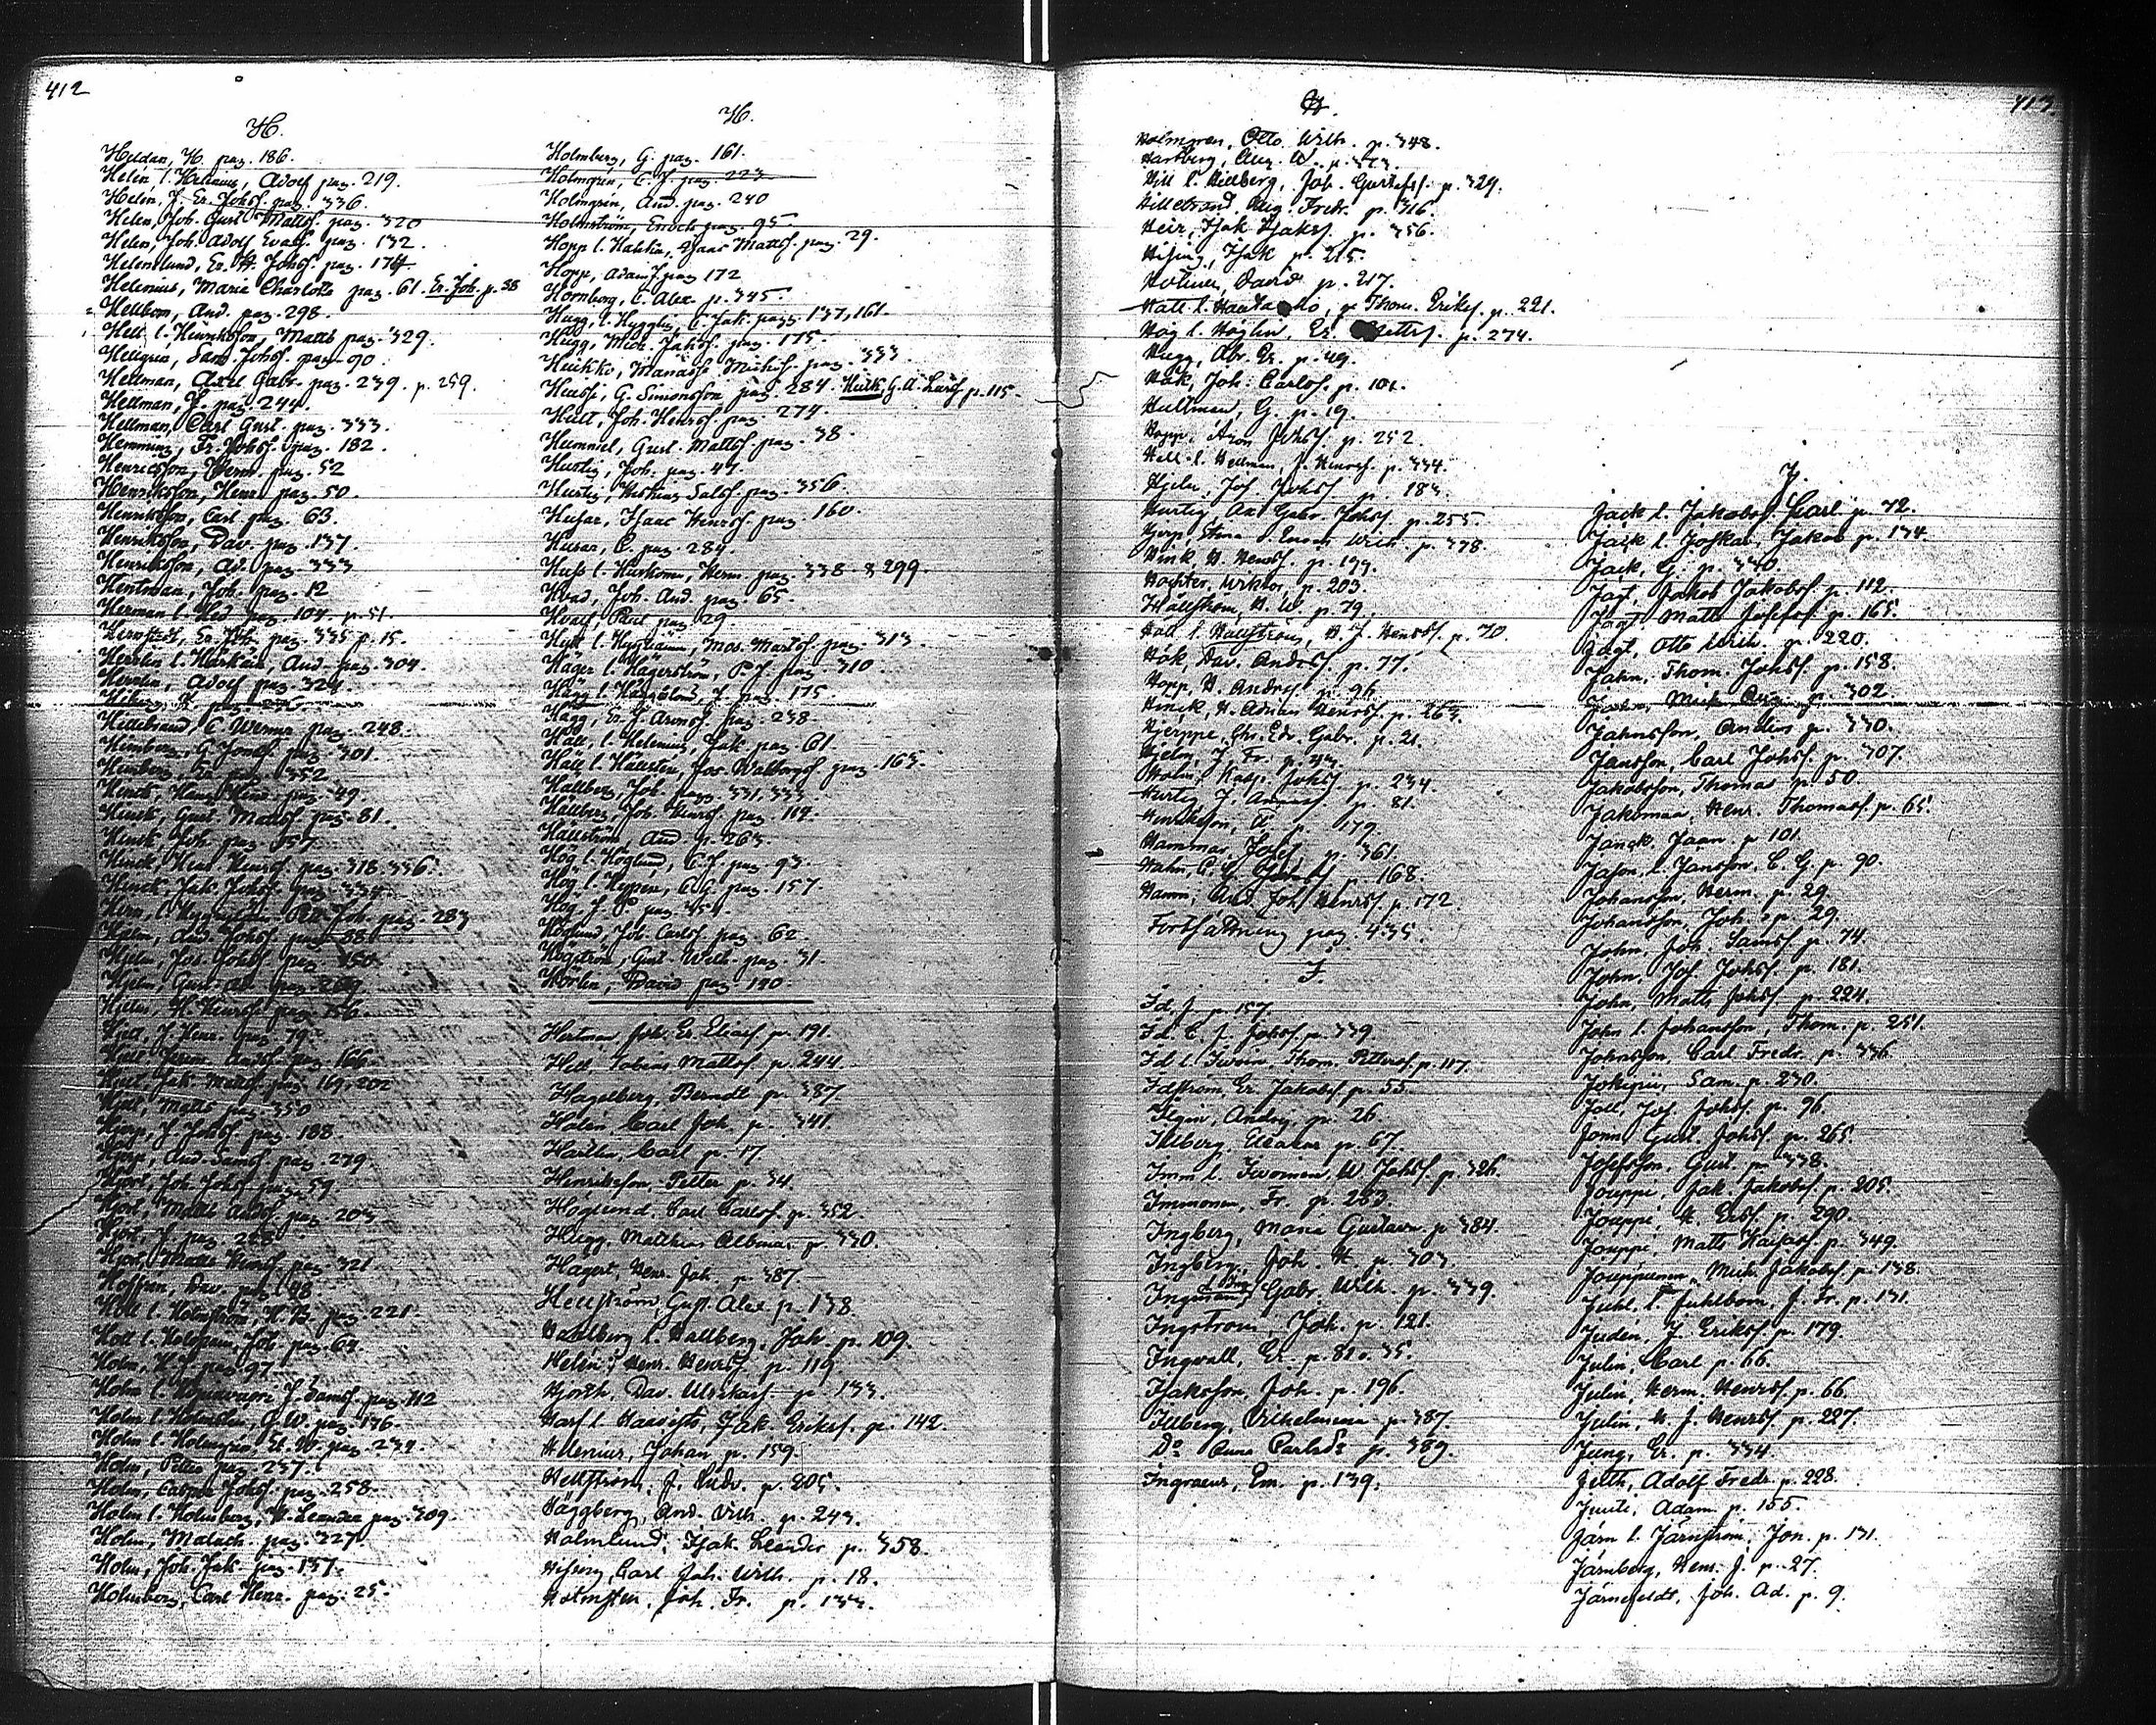 412
H.
Heldan, H. pag. 186.
Helén l. Helenius, Adolf pag. 219.
Helén, J. Er. Johsf. pag. 336.
Helen, Joh. Gust. Mattsf. pag. 320
Helen, Joh. Adolf Evalf. pag. 132.
Helenlund, Er. A. Johsf. pag. 174.
Helenius, Maria Charlotta pag. 61. Er. Joh. p. 38
Hellbom, And. pag. 298.
Hell l. Henriksson, Matts pag. 329.
Hellgren, Sam. Johsf. pag. 90.
Hellman, Axel Gabr. pag. 239. p. 259.
Hellman, J. pag. 244.
Hellman, Carl Gust. pag. 333.
Hemming, Fr. Johsf. pag. 182.
Henricsson, Herm. pag. 52
Henriksson, Henr. pag. 50.
Henriksson, Carl pag. 63.
Henriksson, Dav. pag. 137.
Henriksson, Ad. pag. 333
Hentman, Joh. pag. 12
Herman l. Hed pag. 104. p. 51.
Er. Joh. pag. 335 p. 15.
Herrlin l. Härkäin, And. pag. 304.
Herrlin, Adolf pag. 324.
Hillebrand, C. Werner pag. 248.
Himberg, G. Jonaf. pag. 301.
Himberg, Er. pag. 352
pag. 49.
Hinck, Gust. Mattsf. pag. 81.
Hinck, Joh. pag. 157
Hinck, Henr. Henrsf. pag. 318. 336.
Hinck, Jak. Johsf. pag. 334.
Pet. Joh. pag. 283
Hjelm, And. Johsf. pag. 88
Hjelm, Jos. Johsf. pag. 150
Hjelm, Gust. Ad. pag. 269
H. Henrsf. pag. 156.
J. Henr. pag. 79.
Andsf. pag. 166.
Jak. Mattsf. pag. 169, 202
Matts pag. 350
Hjerp, J. Johsf. pag. 188.
Hjerp, And. Samsf. pag. 279.
Hjort, Joh. Johsf. pag. 59
Hjort, Matts Andsf. pag. 203
Hjort, J. pag. 228
Hjort, Matts Henrsf. pag. 321
Hoffren, Dav. pag. 48
Holl l. Holmström, K. B. pag. 221.
Joh. pag. 64.
Holm, H. J. pag. 97.
Holm l. J. Samsf. pag. 112
Holm l. Holmstén, G. W. pag. 136.
Holm l. Holmgrén, El. W. pag. 232.
Holm, Petter pag. 237.
Holm, Casper Johsf. pag. 258.
Holm l. Holmberg, H. Leander pag. 309.
Holm, Malach. pag. 327.
Holm, Joh. Jak. pag. 137.
Holmberg, Carl Henr. pag. 25.
H.
Holmberg, G. pag. 161.
Holmgrén, C. J. pag. 223
Holmgrén, And. pag. 240
Holmström, Enoch pag. 95
Hopp l. Hakkin, Isaac Mattsf. pag. 29.
Hopp, Adam J. pag. 172
Hornborg, C. Alex. p. 345.
Hugg, l. Hygglin, C. Jak. pag. 137, 161.
Hugg, Mich. Jaksf. pag. 175.
Huikko, Manasse Michelsf. pag. 333.
Hussi, G. Simonsson pag. 284. Hulk, G. A. Larsf. p. 115.
Hult, Joh. Henrsf. pag. 274.
Hummel, Gust. Mattsf. pag. 38.
Hurtig, Joh. pag. 47.
Hurtig, Salsf. pag. 356.
Husar, Isaac Henrsf. pag. 160.
Husar, C. pag. 284.
Huss l. Huskonen, Herm. pag. 338 & 299.
Hvad, Joh. And. pag. 65.
Hvalf, Paul pag. 29
Mos. Martsf. pag. 313.
Häger l. Hägerström, P. J. pag. 310.
Hägg l. Hägglund, J. pag. 175.
Hägg, Er. J. Aronsf. pag. 238.
Häll, l. Helenius, Jak. pag. 61.
Häll l. Hällstén, Jos. Walborgsf. pag. 163.
Hällberg, Joh. pagg. 331, 333.
Hällberg, Joh. Henrsf. pag. 119.
Hällström, And. p. 263.
Hög l. Höglund, C. J. pag. 93.
Hög l. Hypén, C. G. pag. 157.
Hög, J. P. pag. 354.
Höglund, Joh. Carlsf. pag. 62.
Högström, Gust. Wilh. pag. 31.
Hörlén, David pag. 140.
Hertman Joh. Er. Eliasf. p. 191.
Hell, Tobias Mattsf. p. 244.
Hagelberg, Berndt p. 387.
Holén, Carl Joh. p. 341.
Harlin, Carl p. 17
Henriksson, Petter p. 34.
Höglund, Carl Carlsf. p. 352.
Hugg, Matthias Albinus p. 330.
Hagert, Henr. Joh. p. 387.
Hellström, Gust. Alex p. 138.
Hahlberg l. Hallberg, Joh. p. 109.
Helén, Henr. Henrsf. p. 119
Hjorth, Dav. Ulrikasf. p. 133.
Harf l. Haavisto, Isak Eriksf. p. 142.
Helenius, Johan p. 159
Hellström, J. Ludv. p. 205.
Häggberg, And. Vilh. p. 243.
Holmlund, Isak Leander p. 358.
Hising, Carl Joh. Wilh. p. 18.
Holmsten, Joh. Fr. p. 133.
413.
H.
Holmgren, Otto Wilh. p. 348.
Hartberg, Aug. W. p. 373.
Hill l. Hillberg, Joh. Gustafsf. p. 329.
Hillebrand, Aug. Fredr. p. 316.
Heir, Isak Isaksf. p. 356.
Hising, Isak p. 215.
Holmer, David p. 217.
Thom. Eriksf. p. 221.
Hög l. Höglin, Er. p. 274.
Hugg, Abr. Er. p. 49.
Hök, Joh. Carlsf. p. 101.
Hullman, G. p. 19.
Hopp, Aron Johsf. p. 252.
Hell l. Hellman, J. Henrsf. p. 334.
Hjelm, Jos. Johsf. p. 183.
Hurtig, Ax. Gabr. Johsf. p. 255.
Wilh. p. 378.
Hink, H. Henrsf. p. 133.
Hochter, Wiktor, p. 203.
Hällström, H. W. p. 79.
Häll l. Hällström, H. J. Henrsf. p. 70.
Hök, Dav. Andrsf. p. 77.
Hopp, H. Andrsf. p. 96.
Hinck, H. Adrian Henrsf. p. 263.
Hjerppe, Chr. Edv. Gabr. p. 21.
Hjelm, J. Fr. p. 43.
Holm, Kasp. Johsf. p. 234.
Hurtig, J. p. 81.
Henriksson, A. p. 179.
Hammar, Josef p. 361.
Hahn, C. G. p. 168.
Hamm, And. Joh. Henrsf. p. 172.
Fortsättning pag. 435.
I.
Id, J. p. 157.
Id, C. J. Johsf. p. 339.
Id l. Iwoin, Thom. Pettersf. p. 117.
Idström, Er. Jakobsf. p. 55.
Ilgin, Andrej, p. 26.
Illberg, Eleazar p. 67.
Imm l. Immonen, W. Johsf. p. 326.
Immonen, Fr. p. 283.
Ingberg, Maria Gustava p. 384.
Ingberg, Joh. H. p. 303.
Ingman, Gabr. Wilh. p. 339.
Ingström, Joh. p. 121.
Ingwall, Er. p. 81 o. 35.
Isaksson, Joh. p. 196.
Illberg, Vilhelmina p. 387.
Do Anna Carlsdr p. 389.
Ingraeus, Em. p. 139.
J.
Jack l. Jakobsf. Carl p. 72.
Jack l. Joskar, Jakob p. 134.
Jack, G. p. 340.
Jagt, Jakob Jakobsf. p. 112.
Jagt, Matts Josefsf. p. 165.
Jagt, Otto Wilh. p. 220.
Jahn, Thom. Johsf. p. 158.
Jahn, Mich. p. 302.
Jahnsson, Anders p. 330.
Jansson, Carl Johsf. p. 307.
Jakobsson, Thomas p. 50.
Jakoman, Henr. Thomasf. p. 65.
Janck, Jaan p. 101.
Jason, l. Jansson, C. G. p. 90.
Johansson, Herm. p. 29.
Johansson, Joh. p. 29.
John, Joh. Samsf. p. 74.
John, Jos. Johsf. p. 181.
John, Matts Johsf. p. 224.
John l. Johansson, Thom. p. 251.
Johnsson, Carl Fredr. p. 336.
Jokipii, Sam. p. 230.
Joll, Jos. Johsf. p. 96.
Jonn, Gust. Johsf. p. 265.
Josefsson, Gust. p. 338.
Jouppi, Jak. Jakobsf. p. 205.
Jouppi, H. Ersf. p. 290.
Jouppi, Matts Kaijasf. p. 349.
Jouppinen, Mich. Jakobsf. p. 138.
Juhl, l. Juhlbom, J. Fr. p. 131.
Judén, J. Eriksf. p. 179.
Julin, Carl p. 66.
Julin, Herm. Henrsf. p. 66.
Julin, H. J. Henrsf. p. 227.
Jung, Er. p. 334.
Juth, Adolf Fredr. p. 228.
Juuti, Adam p. 155.
Järn l. Järnström, Jon. p. 131.
Järnberg, Henr. J. p. 27.
Järnefeldt, Joh. Ad. p. 9.